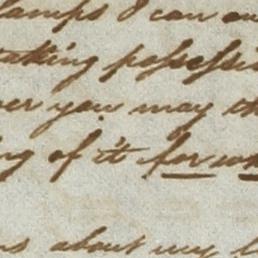 lamps I can
taking possessi
you may th
of it for
about my